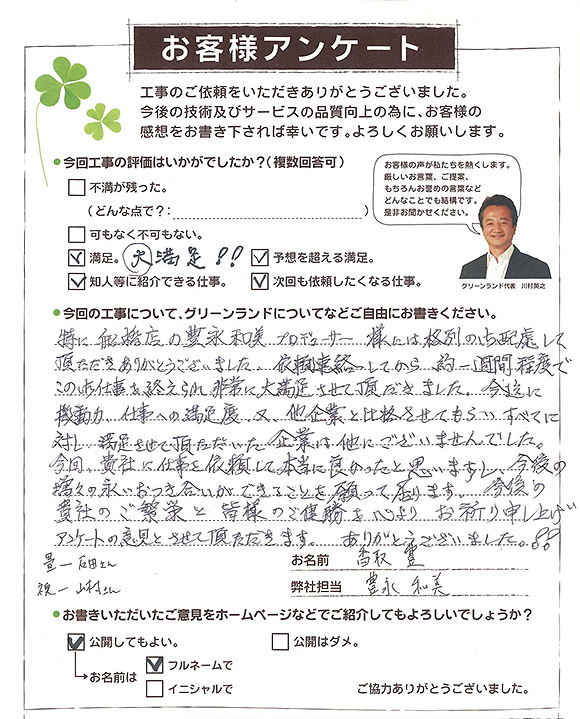 お客様アンケート
工事のご依頼をいただきありがとうございました。
今後の技術及びサービスの品質向上の為に、お客様の
感想をお書き下されば幸いです。よろしくお願いします。
今回工事の評価はいかがでしたか？（複数回答可）
不満が残った。
（どんな点で？：　）
可もなく不可もない。
満足。 大満足!! 予想を超える満足。
知人等に紹介できる仕事。 次回も依頼したくなる仕事。
お客様の声が私たちを熱くします。
厳しいお言葉、ご提案、
もちろんお誉めの言葉など
どんなことでも結構です。
是非お聞かせください。
グリーンランド代表　川村英之
今回の工事について、グリーンランドについてなどご自由にお書きください。
特に船橋店の豊永和美プロデューサー様には格別の心配慮して
頂ただきありがとうございました。依頼連絡してから約一週間程度で
このお仕事を終えられ非常に大満足させて頂だきました。今迄に
機動力、仕事への満足度、又、他企業と比格させてもらい、すべてに
対し満足させて頂ただいた企業は他にございませんでした。
今回、貴社に仕事を依頼して本当に良かったと思いますし、今後の
末永いおつき合いができることを願って居ります。今後の
貴社のご繁栄と皆様のご健勝を心よりお祈り申し上げ
アンケートの意見とさせて頂ただきます。ありがとうございました。!!
畳ー石田さん
お名前 香取 豊
山村さん
弊社担当 豊永 和美
お書きいただいたご意見をホームページなどでご紹介してもよろしいでしょうか？
公開してもよい。 公開はダメ。
お名前は フルネームで
イニシャルで
ご協力ありがとうございました。